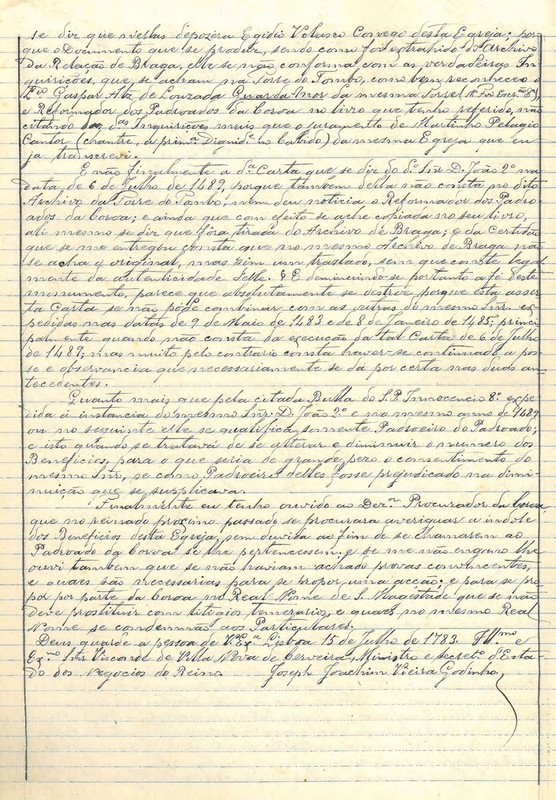 se dir que nellas depozéra Egidio Velasco Conego desta Egreja: por
que o Documento que se produz, sendo como foi extrahido do Archivo
da Relação de Braga, elle se não conforma com as verdadeiras In-
quirições, que se achram na Torre do Tombo, como bem reconheceo o
Gaspar Alz de Louzada Guarda Mor da mesma Torre
e Reformador dos Padroados da Coroa no livro que tenho referido, não
citando das d.as Inquirições mais que o juramento de Martinho Pelagio
Cantor (Chantre, a prim.a Dignid.e no Cabido) da mesma Egreja que eu
já transcrevi.
E não finalmente a d.a Carta que se diz do S.r Snr D. João 2º na
data de 6 de Julho de 1489, porque tambem della não consta no dito
Archivo da Torre do Tombo, nem deu noticia o Reformador dos Padro-
ados da Coroa; e ainda que com effeito se ache copiada no seu livro,
ali mesmo se diz que fôra tirada do Archivo de Braga; e da Certidão
que se me entregou consta que no mesmo Archivo de Braga não
se acha o original, mas sim um traslado, sem que conste legal
mente da autenticidade delle. E deminuindo-se portanto a fé deste
monumento, parece que absolutamente se destroe porque esta asser
ta Carta se não póde combinar com as outras do mesmo Snr. ex-
pedidas nas datas de 9 de Maio de 1483 e de 8 de Janeiro de 1485; princi-
palmente quando não consta da execução da tal Carta de 6 de Julho
de 1489, mas muito pelo contrario consta haver-se continuado a pos-
se e observancia que necessariamente se dá por certa nas duas an-
tecedentes.
Quanto mais que pela citada Bulla do S. P. Innocencio 8º expe-
dida á instancia do mesmo Snr. D. João 2º e no mesmo anno de 1489
ou no seguinte elle se qualifica somente Padroeiro do Padroado;
e isto quando se tratava de se alterar e diminuir o numero dos
Beneficios, para o que seria de grande pezo o consentimento do
mesmo Snr, se como Padroeiro delles fosse prejudicado na dimi-
nuição que se supplicava.
Finalmente eu tenho ouvido ao Dez.or Procurador da Coroa
que no reinado proximo passado se procurara averiguar a indole
dos Beneficios desta Egreja, sem duvida ao fim de se chamarem ao
Padroado da Coroa se lhe pertencessem, e se me não engano lhe
ouvi tambem que se não haviam achado provas convincentes,
e quaes são necessarias para se propor uma acção; e para se pro
por por parte da Coroa no Real Nome de S. Magestade que se não
deve prostituir com litigios temerarios, e quaes no mesmo Real
Nome se condemnão aos Particulares.
Deus guarde a pessoa de V. Ex.a Lisboa 15 de Julho de 1783. Ill.mo e
Ex.mo Snr Visconde de Villa Nova de Cerveira, Ministro e secret.o d'Esta-
do dos Negocios do Reino Joseph Joachim Vieira Godinho,